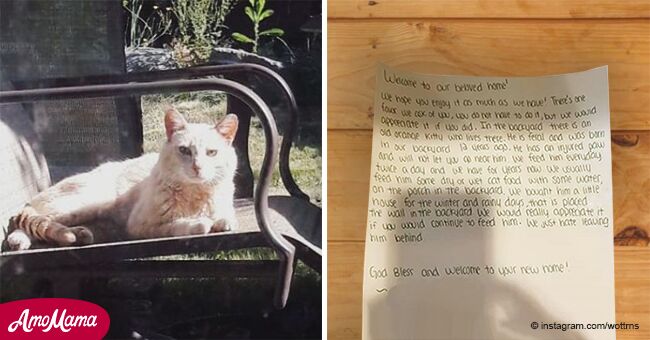 Welcome to our beloved home!
We hope you enjoy it as much as we have! There's one
favor we ask of you, you do not have to do it, but we would
appreciate it if you did. In the backyard there is an
old orange kitty who lives there. He is feral and was born
in our backyard 12 years ago. He has an injured paw
and will not let you go near him. We feed him everyday
twice a day and we have for years now. We usually
feed him some dry or wet cat food with some water
on the porch in the backyard. We bought him a little
house for the winter and rainy days, that is placed
the wall in the backyard. We would really appreciate it
if you would continue to feed him. We just hate leaving
him behind.
God Bless and welcome to your new home!
AmoMama
© instagram.com/wottrns